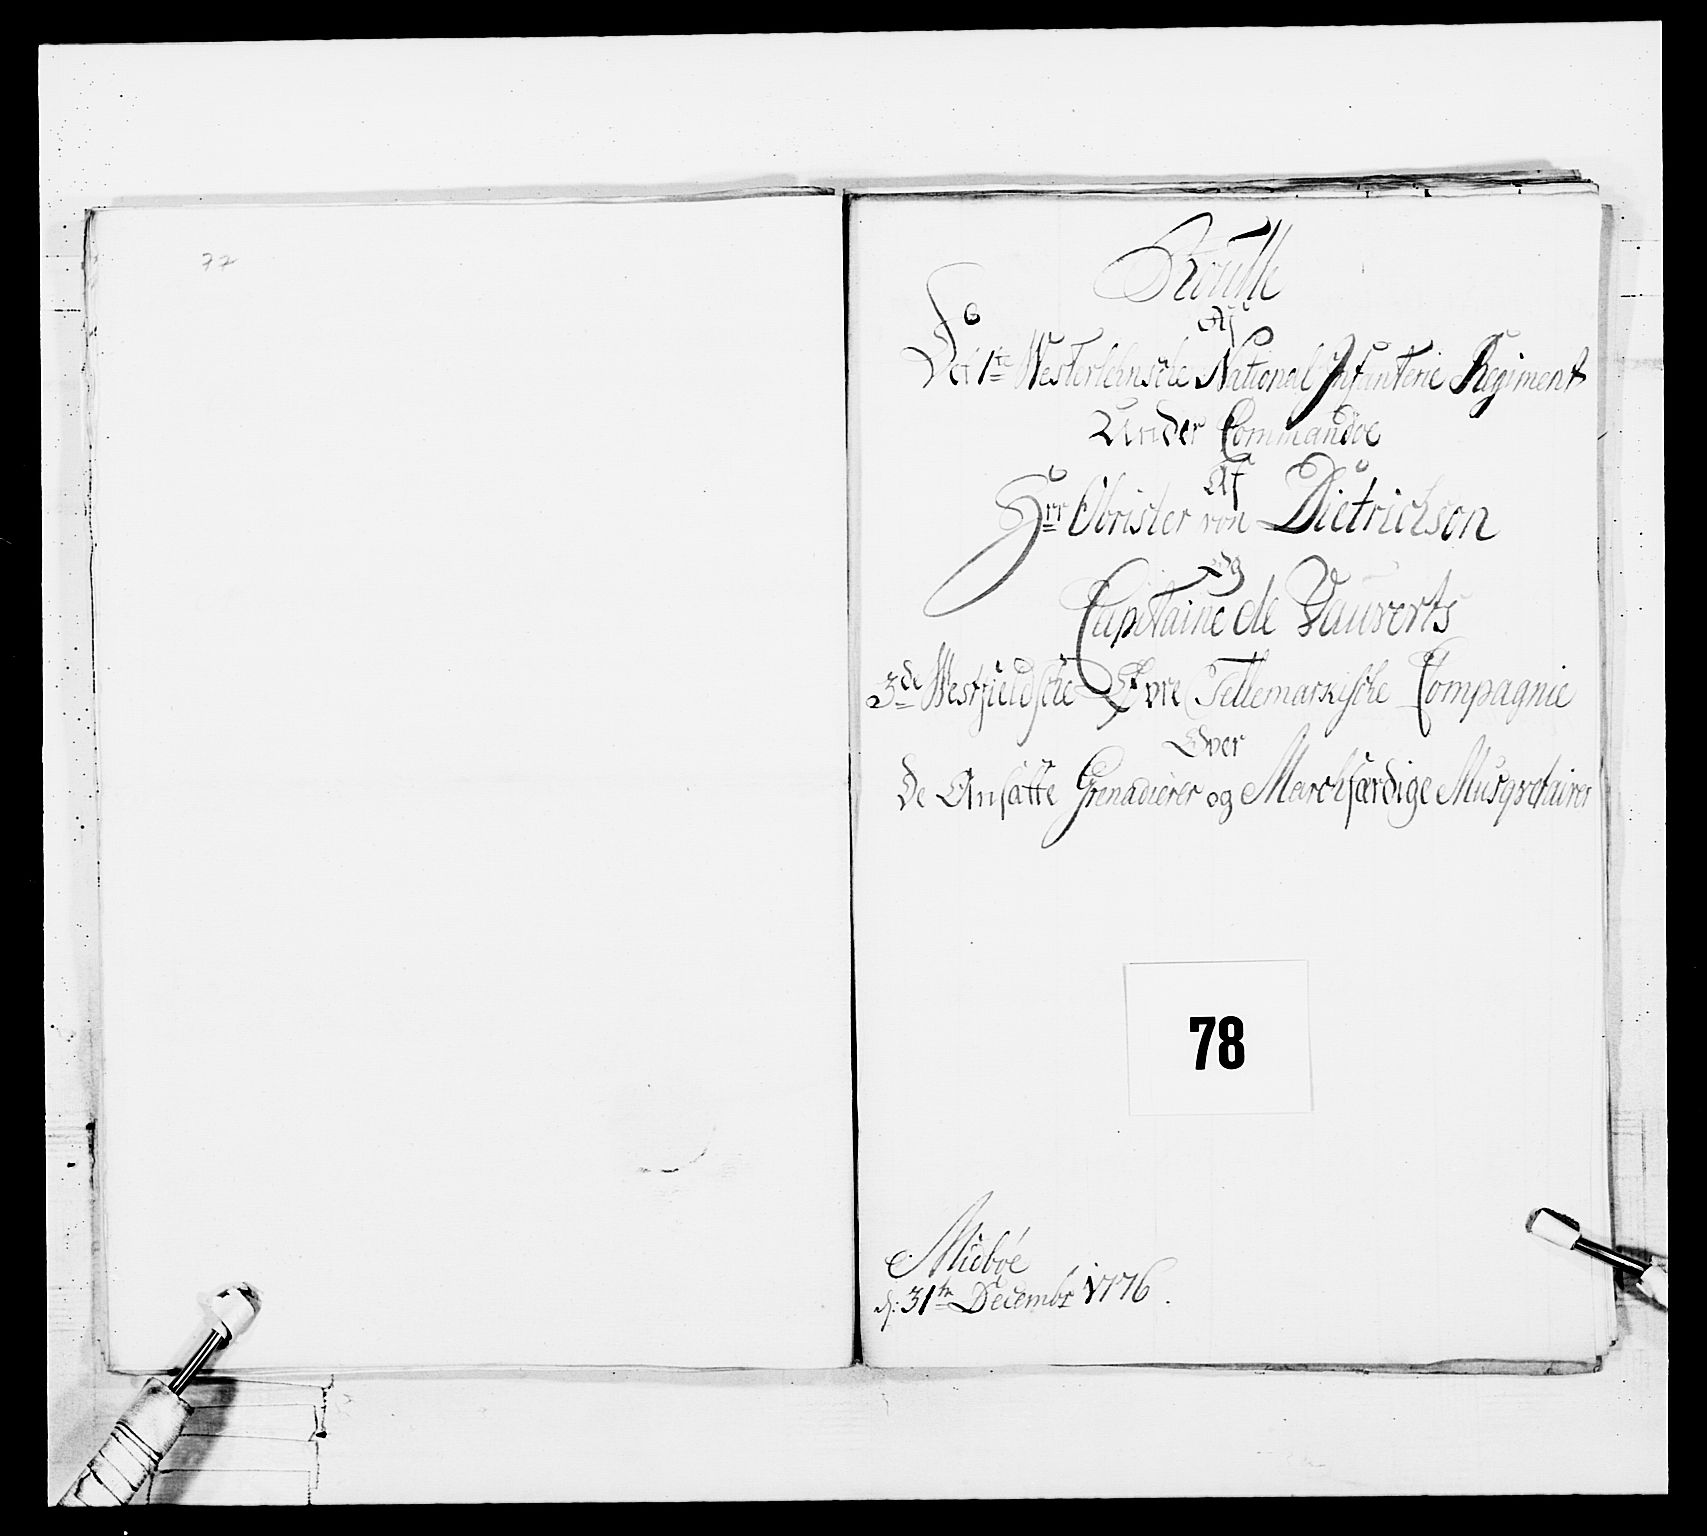 77
Roulle
Af
Det 1te Westerlehnsche National Infanterie Regiment
Under Commandoe
Af
Hrr Obrister von Dietrichson
Og
Capitaine de Vauverts
3de Westfieldsche Øvre Tellemarkische Compagnie
Over
De Ansatte Grenadierer og Marchfærdige Musqvetairer
78
Midbøe
d: 31te Decembr 1776.